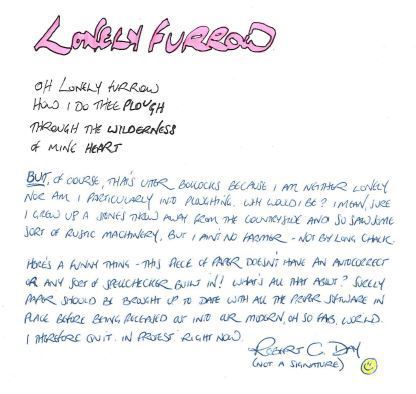 LONELY FURROW
OH LONELY FURROW
HOW I DO THEE PLOUGH
THROUGH THE WILDERNESS
OF MINE HEART
BUT, OF COURSE, THAT'S UTTER BOLLOCKS BECAUSE I AM NEITHER LONELY
NOR AM I PARTICULARLY INTO PLOUGHING. WHY WOULD I BE? I MEAN, SURE
I GREW UP A STONES THROW AWAY FROM THE COUNTRYSIDE AND SO SAW SOME
SORT OF RUSTIC MACHINERY, BUT I AIN'T NO FARMER - NOT BY LONG CHALK.
HERE'S A FUNNY THING - THIS PIECE OF PAPER DOESN'T HAVE AN AUTOCORRECT
OR ANY SORT OF SPELLCHECKER BUILT IN! WHAT'S ALL THAT ABOUT? SURELY
PAPER SHOULD BE BROUGHT UP TO DATE WITH ALL THE PROPER SOFTWARE IN
PLACE BEFORE BEING RELEASED OUT INTO OUR MODERN, OH SO FAB, WORLD.
I THEREFORE QUIT. IN PROTEST. RIGHT NOW.
ROBERT C. DAY
(NOT A SIGNATURE)